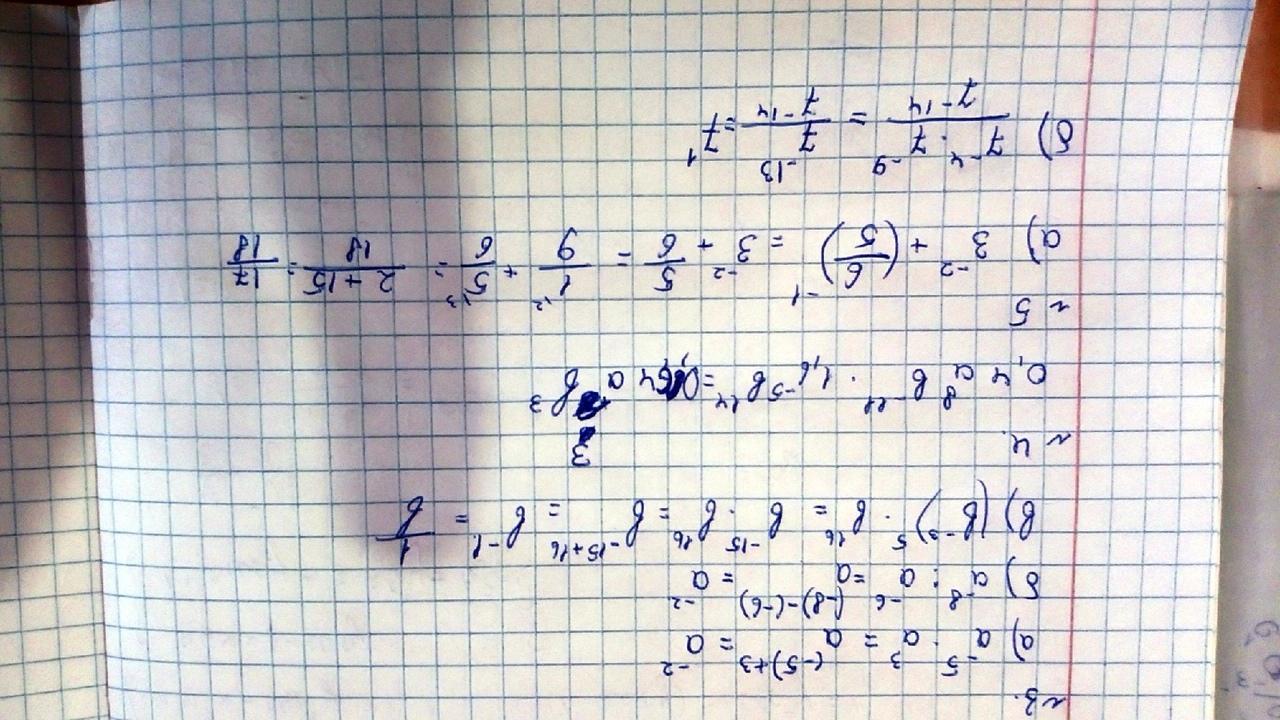 №3.
а) a⁻⁵ · a³ = a⁽⁻⁵⁾⁺³ = a⁻²
б) a⁻⁸ : a⁻⁶ = a⁽⁻⁸⁾⁻⁽⁻⁶⁾ = a⁻²
в) (b⁻³)⁵ · b¹⁶ = b⁻¹⁵ · b¹⁶ = b⁻¹⁵⁺¹⁶ = b⁻¹ = 1/b
№4.
0,4 a⁸ b⁻¹¹ · 1,6⁻⁵ b¹⁴ = 0,64 a³ b³
№5
а) 3⁻² + (6/5)⁻¹ = 3⁻² + 5/6 = 1/9 + 5/6 = 2+15/18 = 17/18
б) 7⁻⁴ · 7⁻⁹ / 7⁻¹⁴ = 7⁻¹³ / 7⁻¹⁴ = 7¹